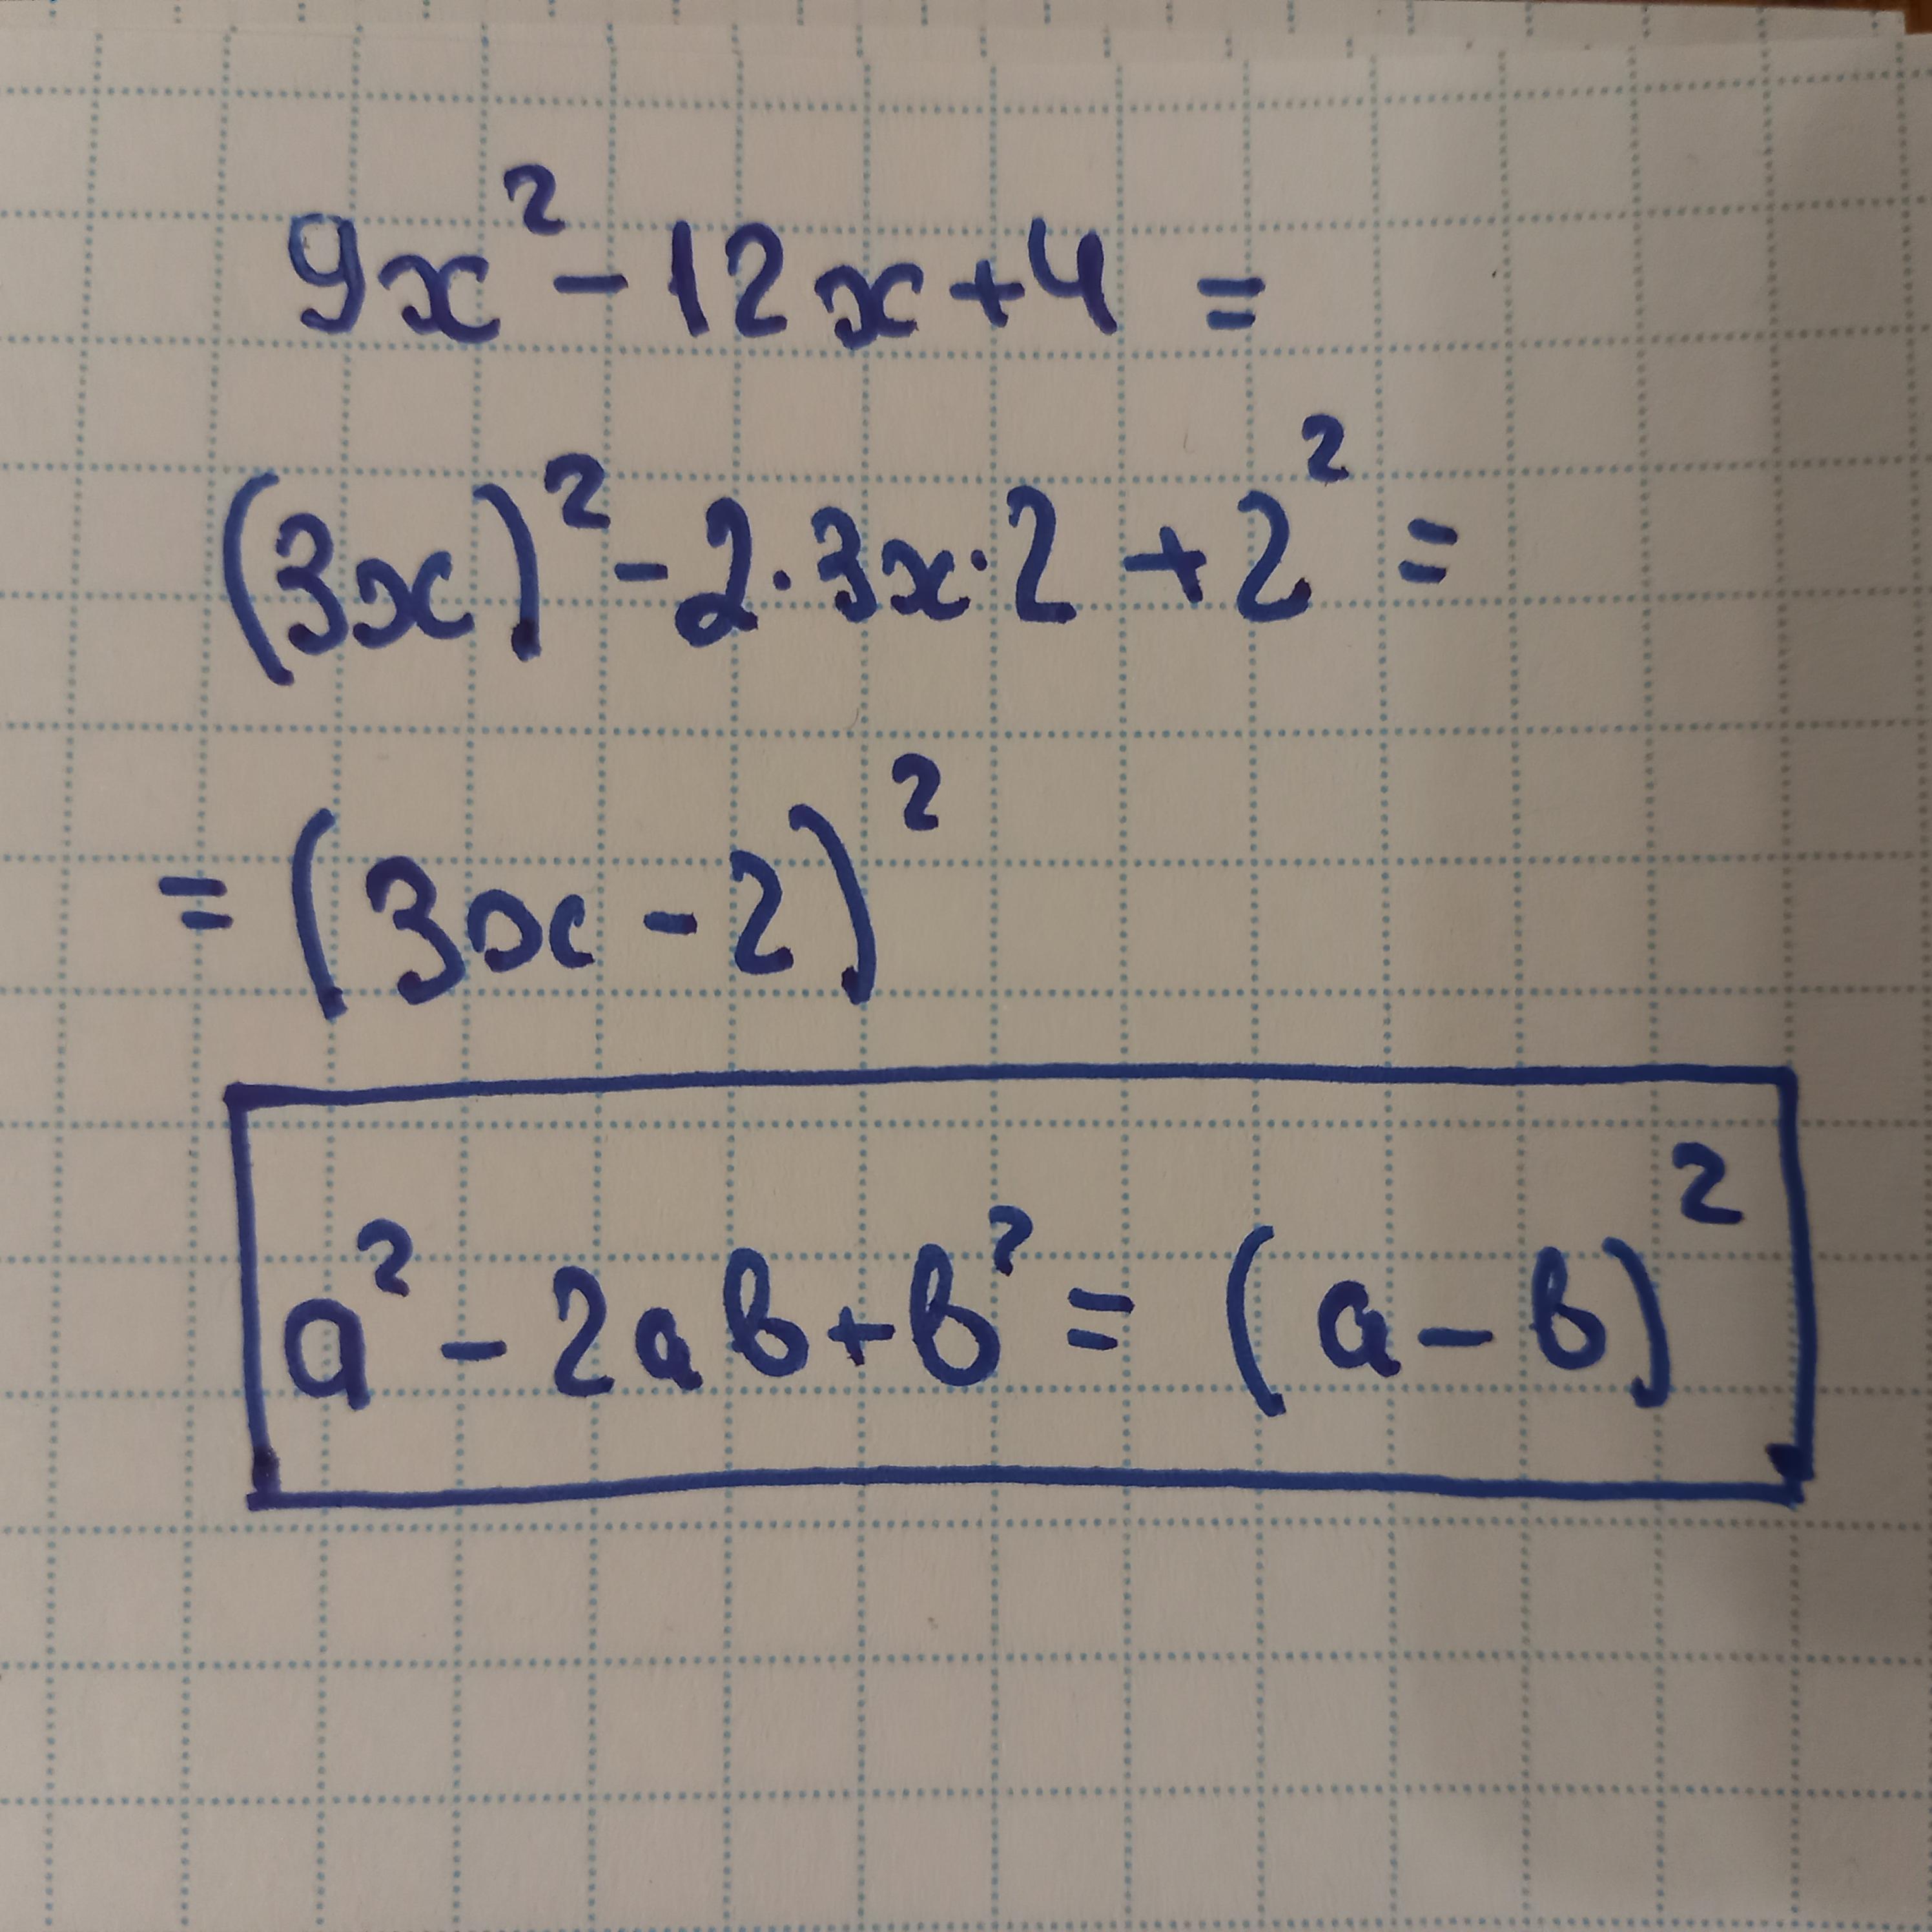 9x² - 12x + 4 =
(3x)² - 2·3x·2 + 2² =
= (3x - 2)²
a² - 2ab + b² = (a - b)²